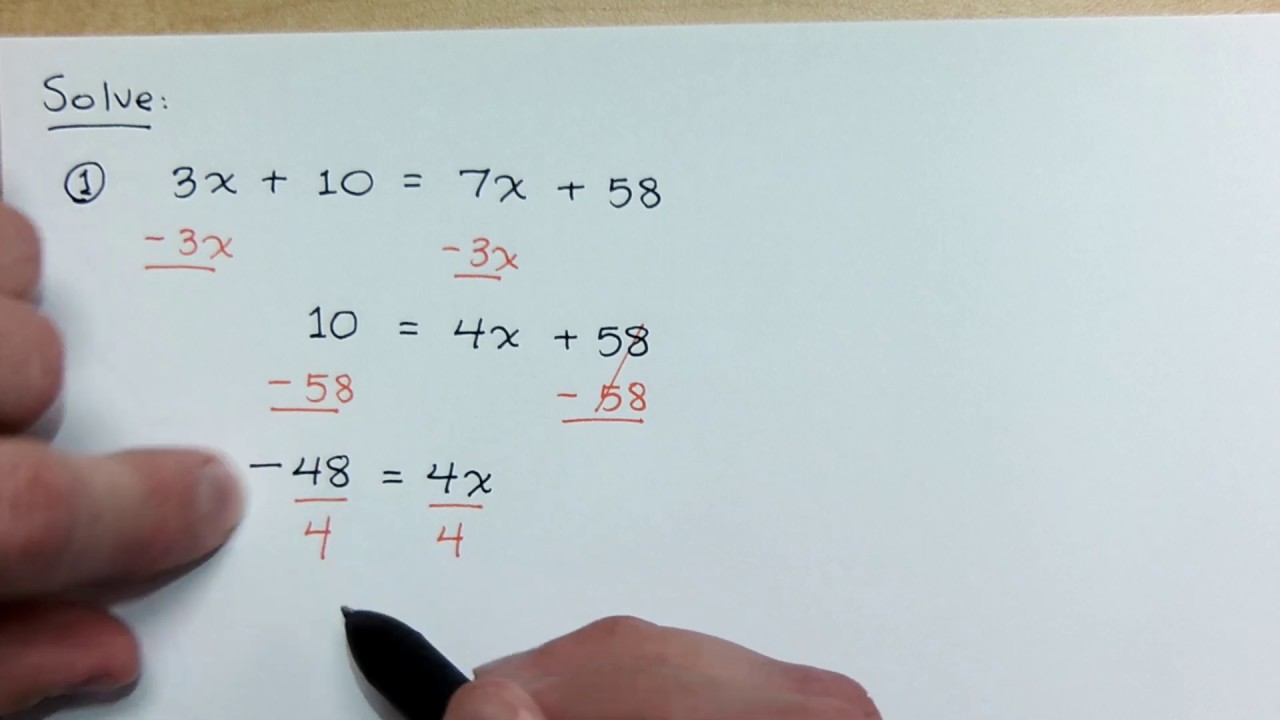 Solve:
① 3x + 10 = 7x + 58
-3x -3x
10 = 4x + 58
-58 -58
-48 = 4x
4 4